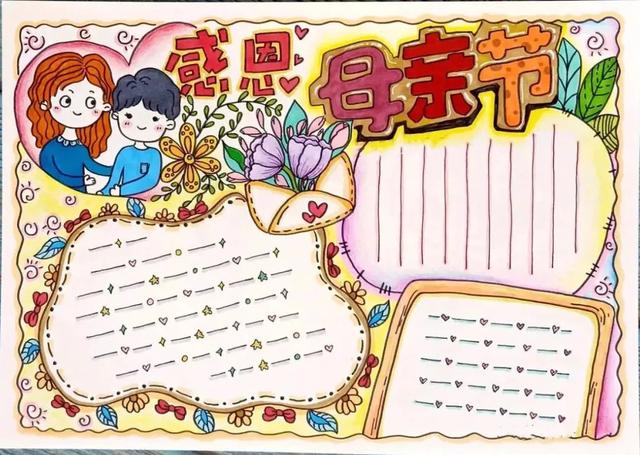 感恩
母亲节